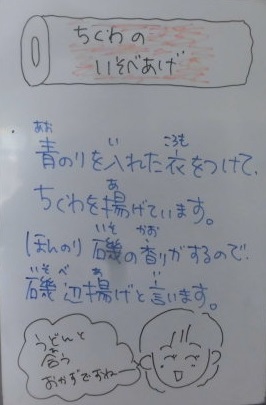 ちくわの
いそべあげ
あお い ころも
青のりを入れた衣をつけて、
あ
ちくわを揚げています。
いそ かお
ほんのり磯の香りがするので
いそ べ あ い
磯辺揚げと言います。
うどんと
合う
おかずですね